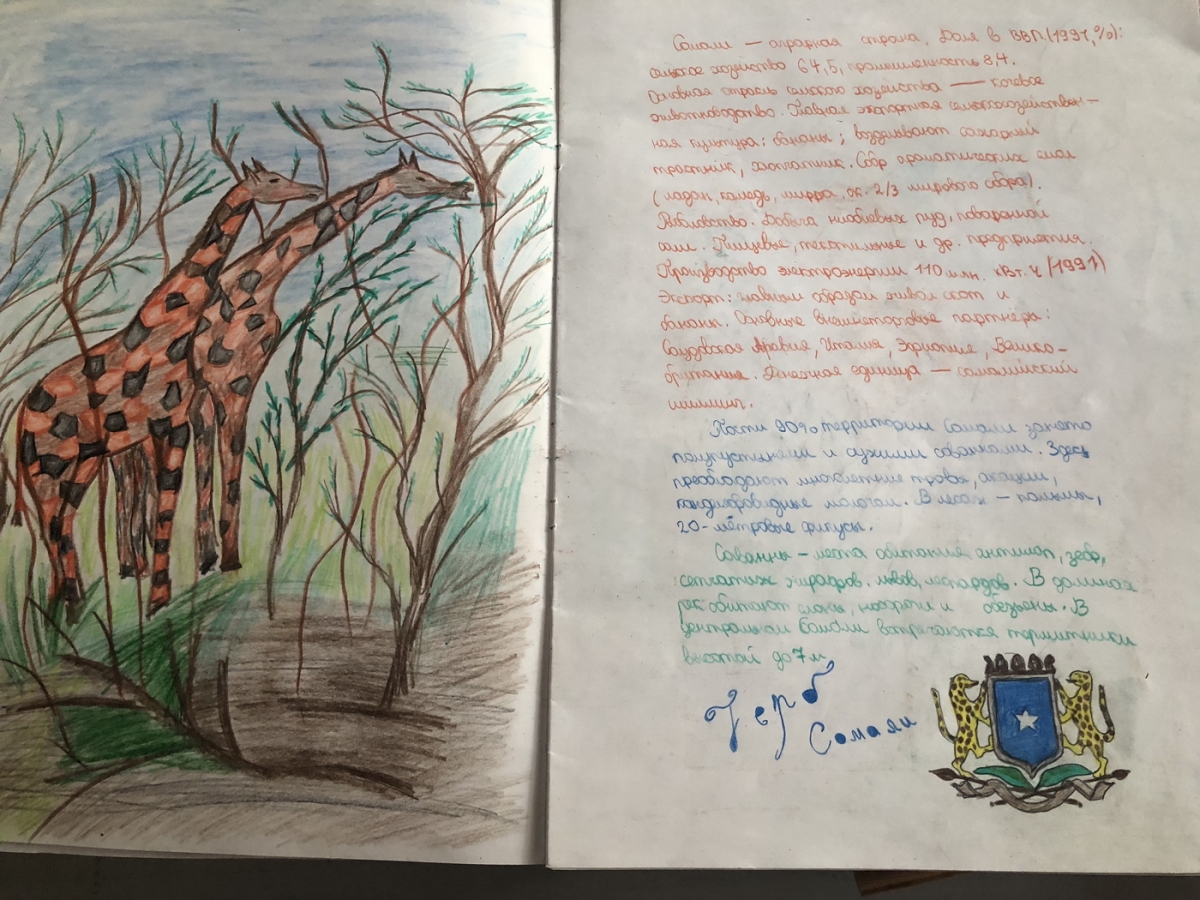 Сомали — аграрная страна. Доля в ВВП (1991, %):
сельское хозяйство 64,5, промышленность 8,4.
Основная отрасль сельского хозяйства — кочевое
животноводство. Главная экспортная сельскохозяйствен-
ная культура: бананы; возделывают сахарный
тростник, хлопчатник. Сбор ароматических смол
(ладан, камедь, мирра, ок. 2/3 мирового сбора).
Рыболовство. Добыча ниобиевых руд, поваренной
соли. Пищевые, текстильные и др. предприятия.
Производство электроэнергии 110 млн. кВт.ч (1991)
Экспорт: главным образом живой скот и
бананы. Основные внешнеторговые партнёры:
Саудовская Аравия, Италия, Эфиопия, Велико-
британия. Денежная единица — сомалийский
шиллинг.
Почти 90% территории Сомали занято
полупустынями и сухими саваннами. Здесь
преобладают многолетние травы, акации,
канделябровидные молочаи. В лесах — пальмы,
20-метровые фикусы.
Саванны – места обитания антилоп, зебр,
сетчатых жирафов, львов, леопардов. В долинах
рек обитают слоны, носороги и обезьяны. В
центральном Сомали встречаются термитники
высотой до 7 м
Герб
Сомали